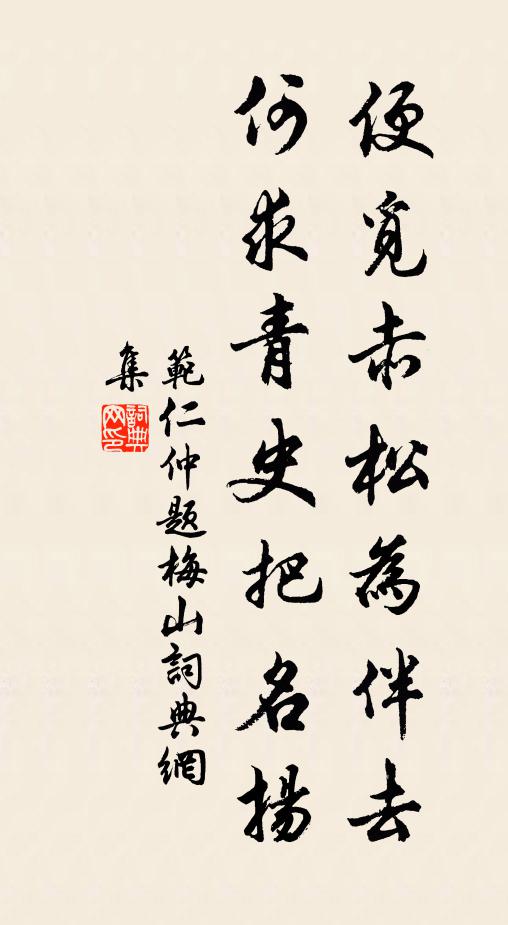 便覓赤松為伴去
何求青史把名揚
範仁仲題梅山詞典網
集
詞典網印